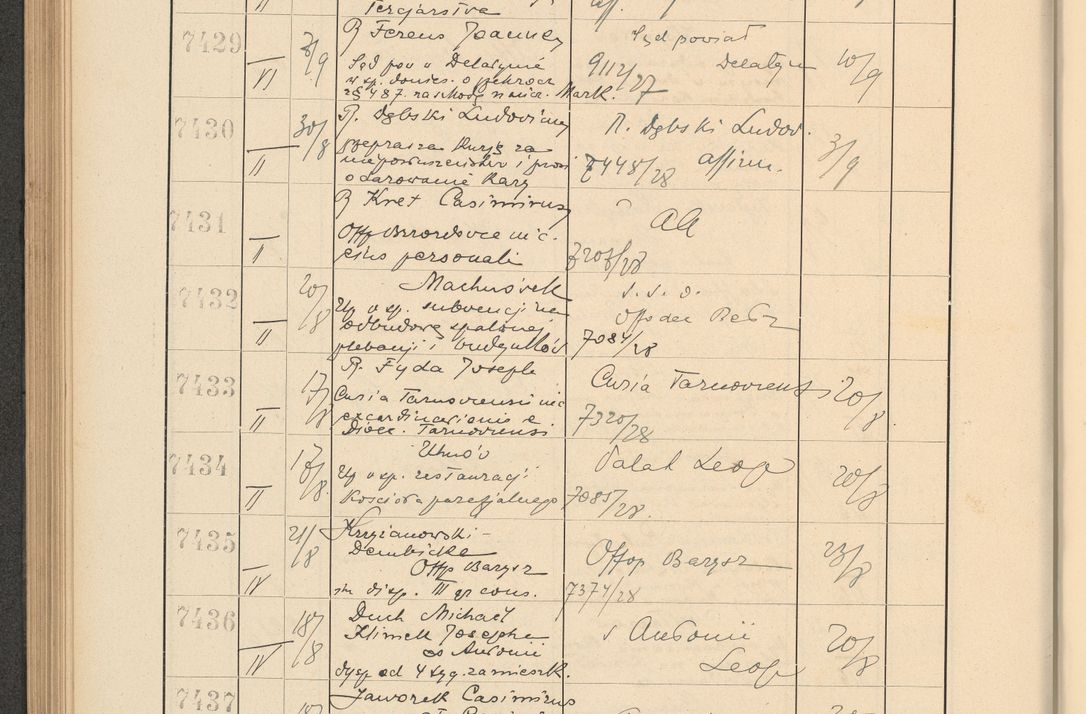 Tercjarstva
7429
VI
9
R Ferens Joannes
Sąd pow w Delatynie
w sp. donies. o przekrocz
z § 487. na szkodę
Mark.
Sąd powiat
Delatyn
9112/27
10/9
7430
II
30/8
R. Dębski Ludovicus
przeprasza Kurję za
nieposłuszeństwo i prosi
o darowanie kary
R. Dębski Ludov.
7448/28 affirm.
3/9
7431
II
R Kret Casimirus
personali
7207/28
aa
7432
II
20/8
Machnówek
Up w sp. subvencji na
odbudowę spalonej
plebanji i budynków
s. s. o.
Offo dec Bełz
7084/28
7433
II
17/8
R. Fyda Joseph
Curia Tarnoviensis
excardinationis e
Dioec. Tarnoviensi
Curia Tarnoviensis
7320/28
20/8
7434
II
17/8
Uhnów
Up w sp. restauracji
Kościoła parafjalnego
Palat Leop
7085/28.
20/8
7435
IV
21/8
Krzyżanowski -
Dembicka
Offp Barysz
disp. III gr cons.
Offop Barysz
7374/28
23/8
7436
IV
18/8
Duch Michael
Klimek Josepha
s Antonii
dysp od 4 tyg. zamieszk.
s Antonii
Leop
20/8
7437
Jaworek Casimirus